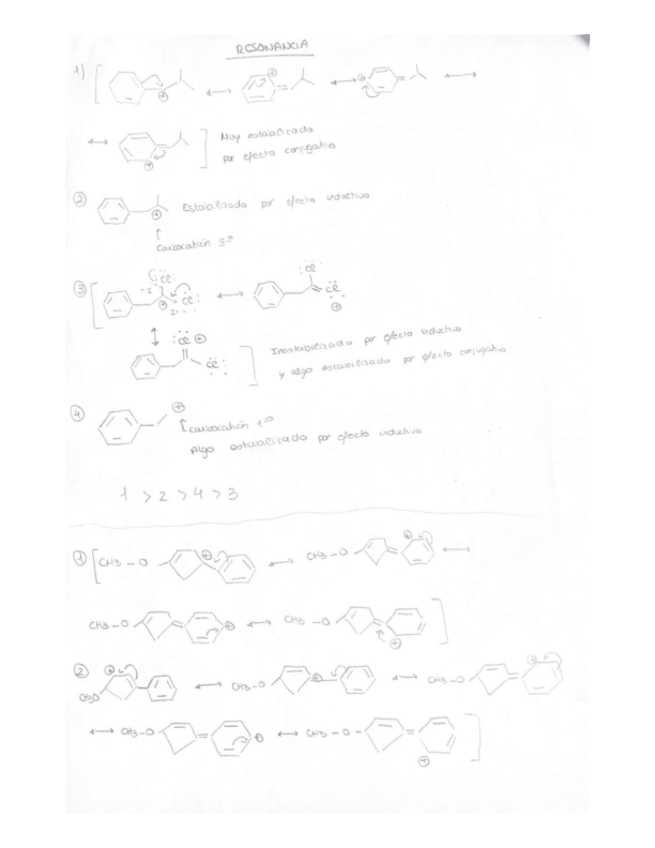 RESONANCIA
1)
Muy estabilizado
por efecto conjugativo
② Estabilizado por efecto inductivo
Carbocatión 3º
③
Inestabilizado por efecto inductivo
y algo estabilizado por efecto conjugativo
④
Carbocatión 1º
Algo estabilizado por efecto inductivo
1 > 2 > 4 > 3
① CH3 - O CH3 - O
CH3 - O CH3 - O
②
CH3O CH3 - O CH3 - O
CH3 - O CH3 - O